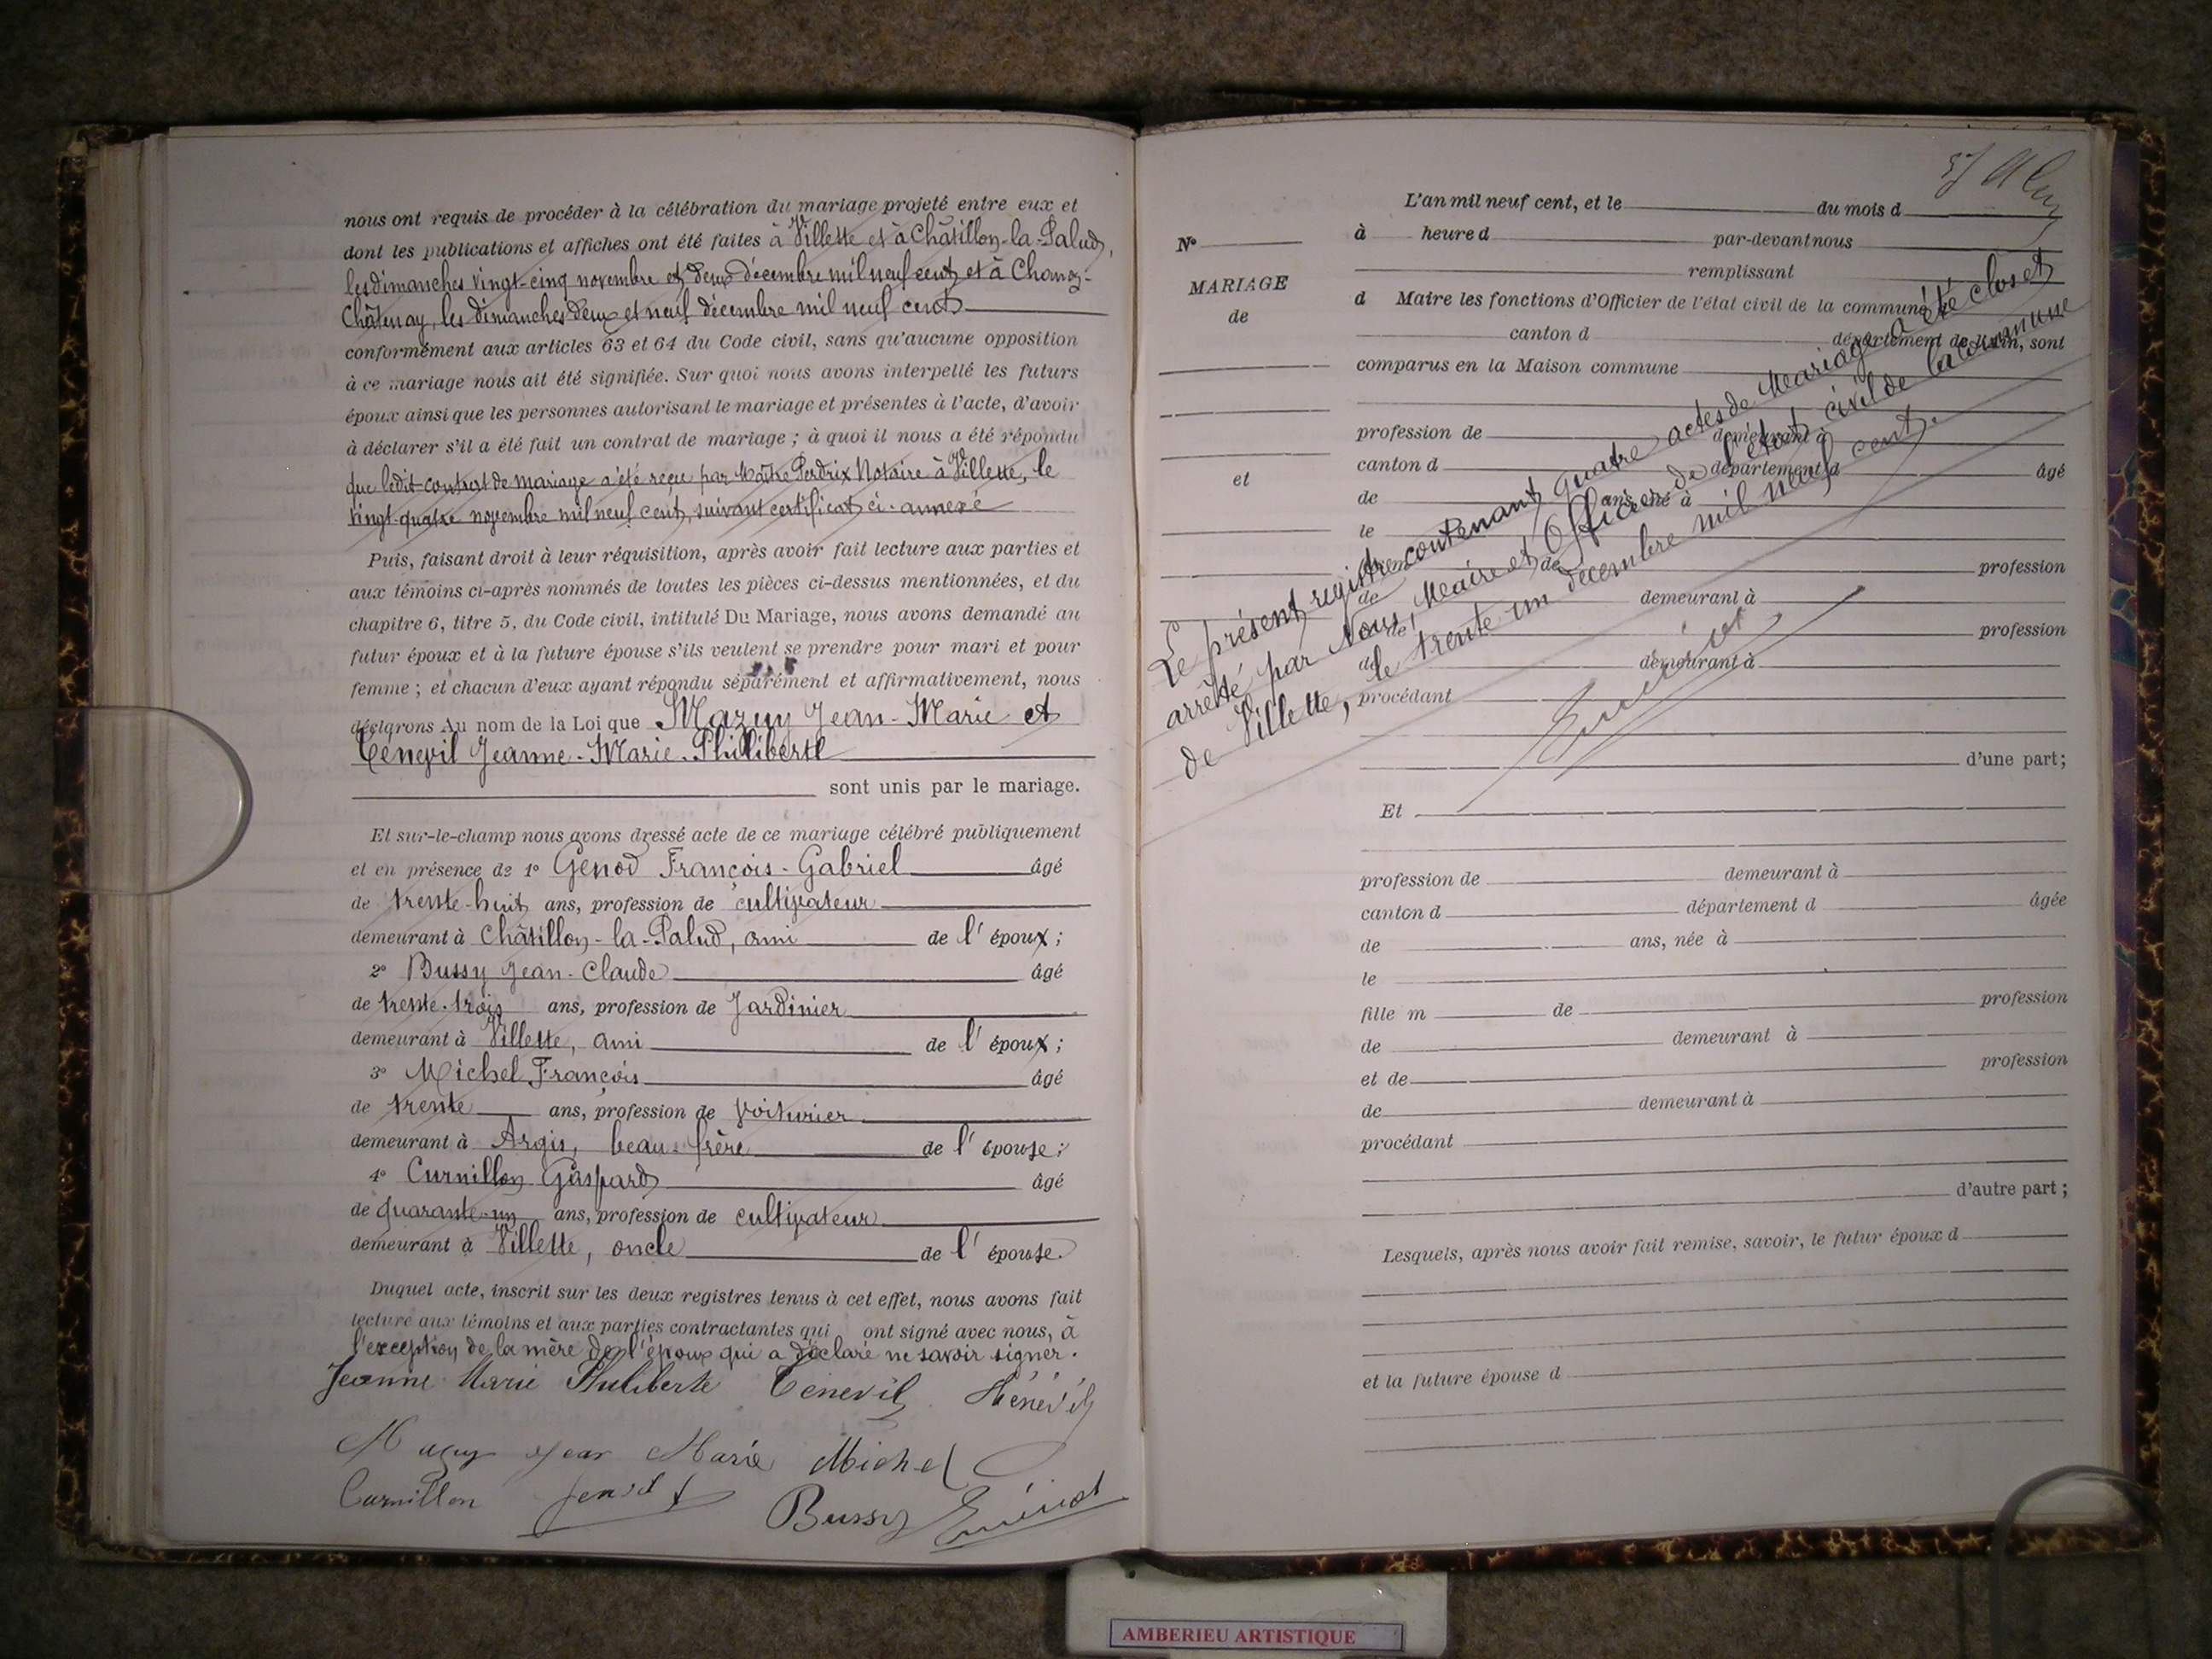 nous ont requis de procéder à la célébration du mariage projeté entre eux et
dont les publications et affiches ont été faites à Villette et à Châtillon-la-Palud,
les dimanches vingt-cinq novembre et deux décembre mil neuf cent et à Chanoz-
Châtenay, les dimanches deux et neuf décembre mil neuf cent
conformément aux articles 63 et 64 du Code civil, sans qu'aucune opposition
à ce mariage nous ait été signifiée. Sur quoi nous avons interpellé les futurs
époux ainsi que les personnes autorisant le mariage et présentes à l'acte, d'avoir
à déclarer s'il a été fait un contrat de mariage ; à quoi il nous a été répondu
que ledit contrat de mariage a été reçu par Maître Perdrix Notaire à Villette, le
vingt-quatre novembre mil neuf cent, suivant certificat ci-annexé
Puis, faisant droit à leur réquisition, après avoir fait lecture aux parties et
aux témoins ci-après nommés de toutes les pièces ci-dessus mentionnées, et du
chapitre 6, titre 5, du Code civil, intitulé Du Mariage, nous avons demandé au
futur époux et à la future épouse s'ils veulent se prendre pour mari et pour
femme ; et chacun d'eux ayant répondu séparément et affirmativement, nous
déclarons Au nom de la Loi que Mazuy Jean-Marie et
Ténevil Jeanne-Marie-Philiberte
sont unis par le mariage.
Et sur-le-champ nous avons dressé acte de ce mariage célébré publiquement
et en présence de 1° Genod François-Gabriel âgé
de trente-huit ans, profession de cultivateur
demeurant à Châtillon-la-Palud, ami de l'époux ;
2° Bussy Jean-Claude âgé
de trente-trois ans, profession de Jardinier
demeurant à Villette, ami de l'époux ;
3° Michel François âgé
de trente ans, profession de voiturier
demeurant à Argis, beau-frère de l'épouse ;
4° Curnillon Gaspard âgé
de quarante-un ans, profession de cultivateur
demeurant à Villette, oncle de l'épouse.
Duquel acte, inscrit sur les deux registres tenus à cet effet, nous avons fait
lecture aux témoins et aux parties contractantes qui ont signé avec nous, à
l'exception de la mère de l'époux qui a déclaré ne savoir signer.
Jeanne Marie Philiberte Tenevil Ténévil
Mazuy Jean Marie Michel
Curnillon Genod
Bussy
L'an mil neuf cent, et le du mois d
à heure d par-devant nous
N°
remplissant
MARIAGE
de
d Maire les fonctions d'Officier de l'état civil de la commune
canton d département de l'Ain, sont
comparus en la Maison commune
profession de demeurant à
canton d département d âgé
et
de ans, né à
le
de profession
de demeurant à
et de profession
de demeurant à
procédant
d'une part;
Le présent registre contenant quatre actes de Mariage a été clos et
arrêté par Nous, Maire et Officier de l'état civil de la commune
de Villette, le trente un décembre mil neuf cent.
Et
profession de demeurant à
canton d département d âgée
de ans, née à
le
fille m de profession
de demeurant à
et de profession
de demeurant à
procédant
d'autre part ;
Lesquels, après nous avoir fait remise, savoir, le futur époux d
et la future épouse d
AMBERIEU ARTISTIQUE